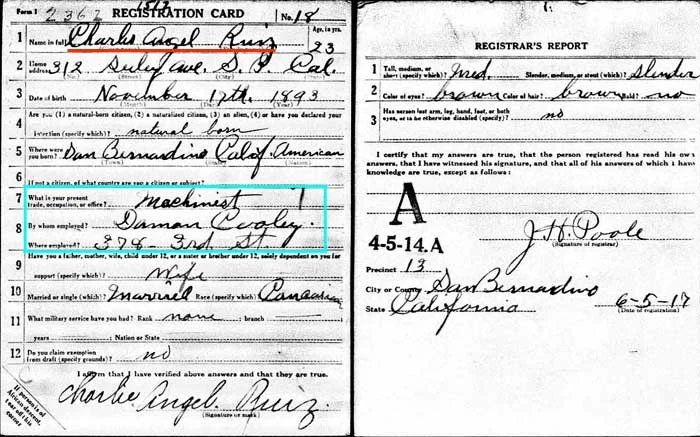 Form 1 2362 1517 REGISTRATION CARD No. 18
1 Name in full Charlie Angel Ruiz Age, in yrs. 23
2 Home address 312 ave. S. B. Cal.
(No.) (Street) (City) (State)
3 Date of birth November 17th. 1893
(Month) (Day) (Year)
4 Are you (1) a natural-born citizen, (2) a naturalized citizen, (3) an alien, (4) or have you declared your
intention (specify which)? natural born
5 Where were you born? San Bernardino Calif. American
(Town) (State) (Nation)
6 If not a citizen, of what country are you a citizen or subject?
7 What is your present trade, occupation, or office? Machinist
8 By whom employed? Damon Cooley.
Where employed? 378 - 3rd St
9 Have you a father, mother, wife, child under 12, or a sister or brother under 12, solely dependent on you for
support (specify which)? Wife
10 Married or single (which)? Married Race (specify which)? Caucasian
11 What military service have you had? Rank none ; branch
years ; Nation or State
12 Do you claim exemption from draft (specify grounds)? no
I affirm that I have verified above answers and that they are true.
Charlie Angel Ruiz.
(Signature or mark)
If person is of African descent, tear off this corner
REGISTRAR'S REPORT
1 Tall, medium, or short (specify which)? Med. Slender, medium, or stout (which)? Slender
2 Color of eyes? brown Color of hair? brown Bald? no
3 Has person lost arm, leg, hand, foot, or both eyes, or is he otherwise disabled (specify)? no
I certify that my answers are true, that the person registered has read his own
answers, that I have witnessed his signature, and that all of his answers of which I have
knowledge are true, except as follows:
A
4-5-14.A
J. H. Poole
(Signature of registrar)
Precinct 13
City or County San Bernardino
State California 6-5-17
(Date of registration)